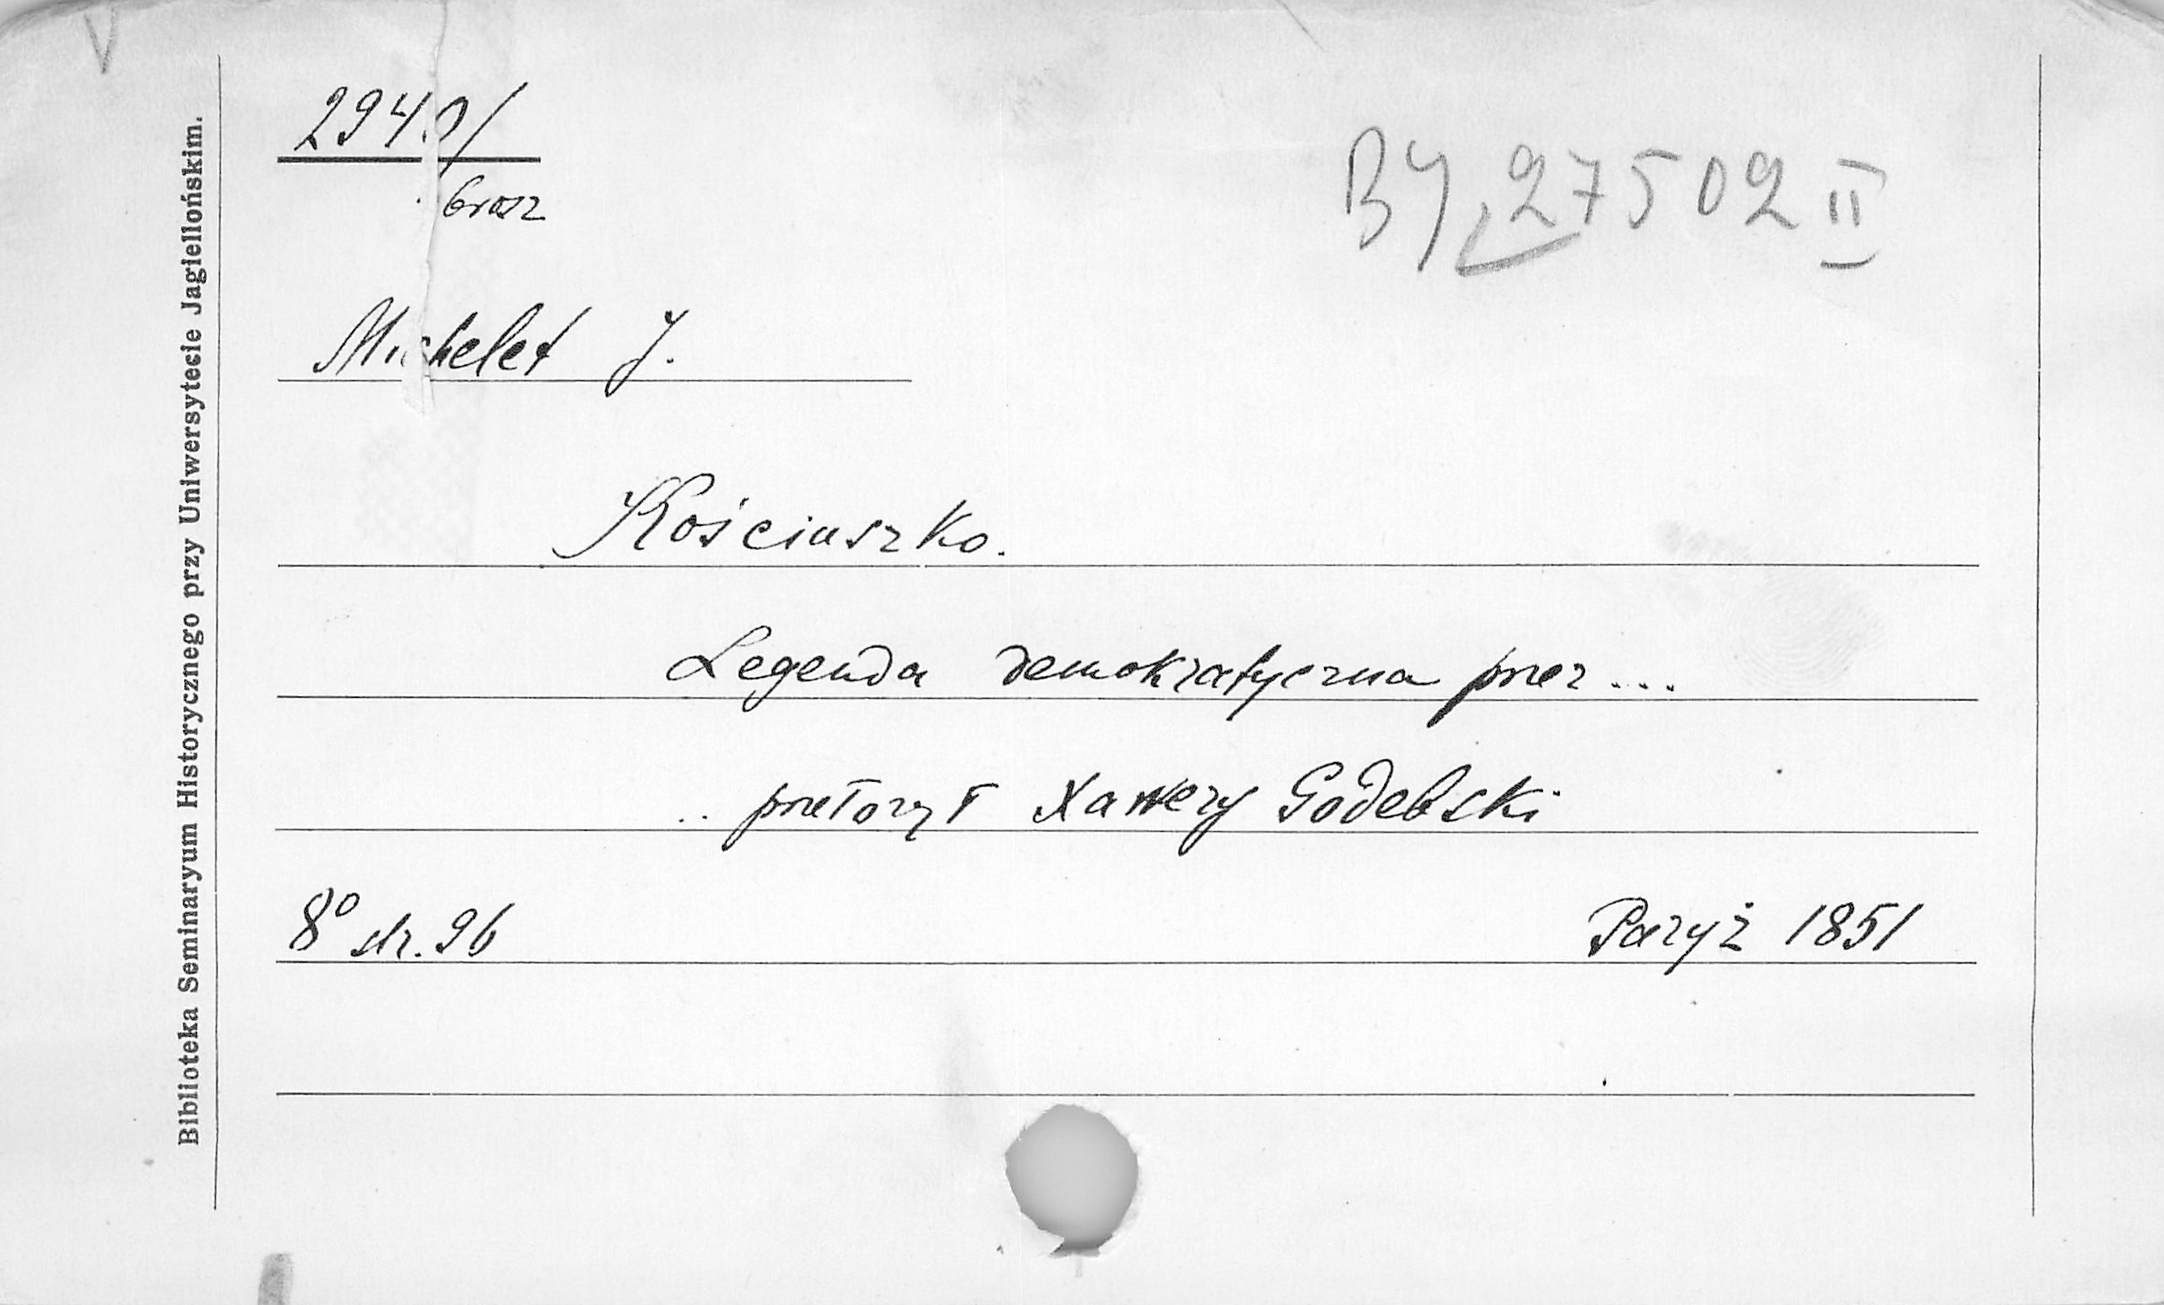 V
2940/
brosz
BJ 27502 II
Michelet J.
Kościuszko.
Legenda demokratyczna przez ...
.. przełożył Xawery Godebski
8° str. 96
Paryż 1851
Biblioteka Seminaryum Historycznego przy Uniwersytecie Jagiellońskim.